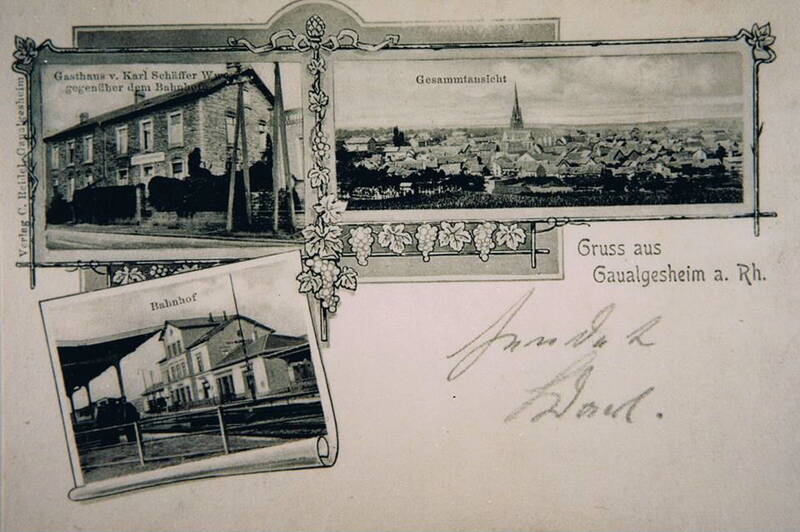 Gasthaus v. Karl Schäffer Wwe.
gegenüber dem Bahnhof
Gesammtansicht
Verlag C. Reidel, Gaualgesheim
Gruss aus
Gaualgesheim a. Rh.
Bahnhof
sendet